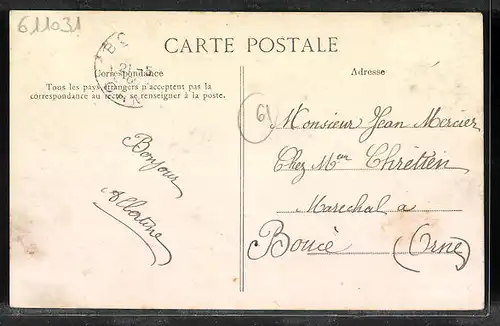 611031
CARTE POSTALE
Correspondance
Tous les pays étrangers n'acceptent pas la
correspondance au recto, se renseigner à la poste.
Bonjour
Albertine
Adresse
61
Monsieur Jean Mercier
Chez Mr Chrétien
Marechal a
Boucé (Orne)